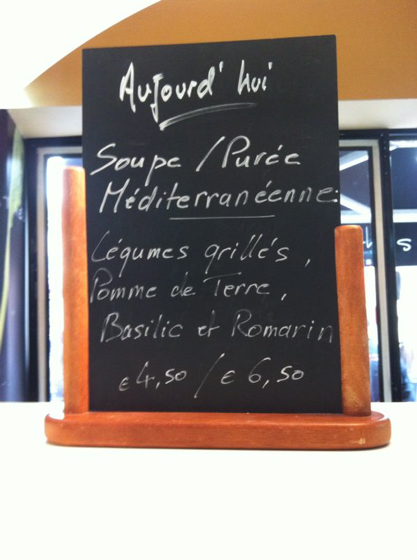 Aujourd' hui
Soupe / Purée
Méditerranéenne.
Légumes grillés,
Pomme de Terre,
Basilic et Romarin
€ 4,50 / € 6,50